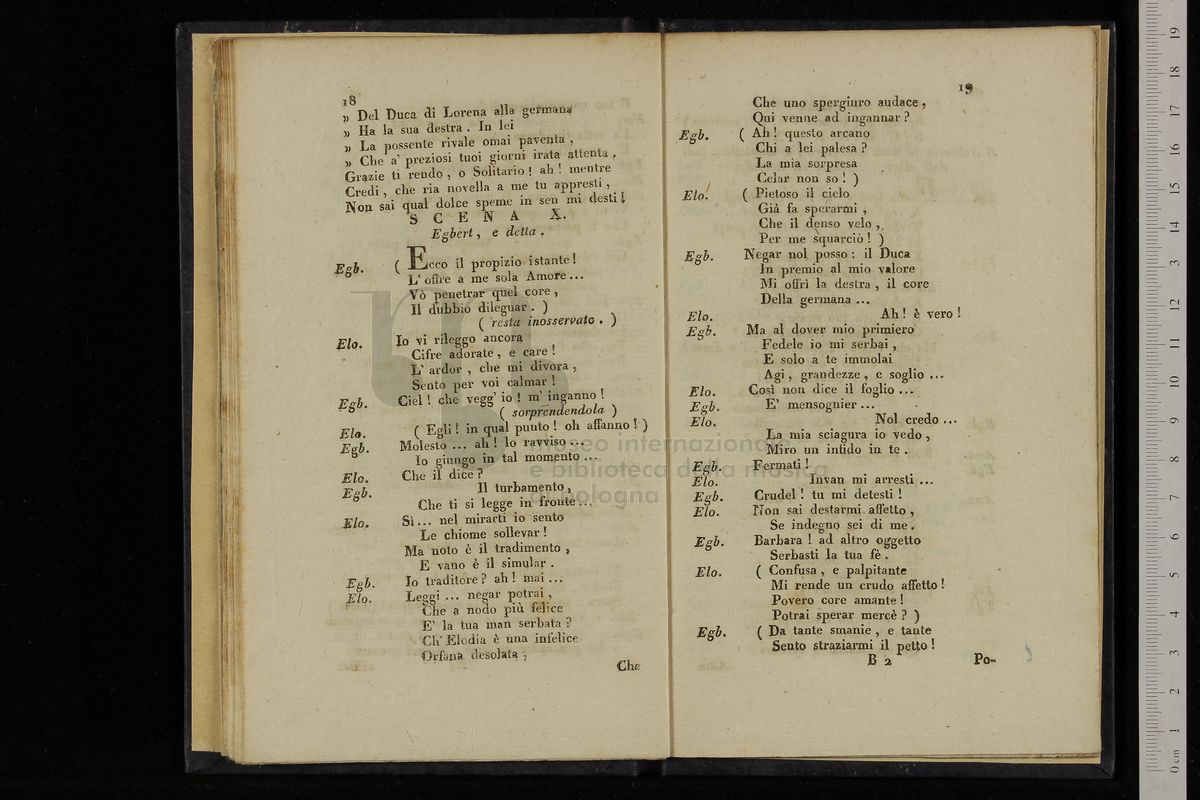 18
„ Del Duca di Lorena alla germana
„ Ha la sua destra . In lei
„ La possente rivale omai paventa ,
„ Che a' preziosi tuoi giorni irata attenta .
Grazie ti rendo , o Solitario ! ah ! mentre
Credi , che ria novella a me tu appresti ,
Non sai qual dolce speme in sen mi desti !
SCENA X.
Egbert , e detta .
Egb. ( Ecco il propizio istante !
L' offre a me sola Amore ...
Vò penetrar quel core ,
Il dubbio dileguar . )
( resta inosservato . )
Elo. Io vi rileggo ancora
Cifre adorate , e care !
L' ardor , che mi divora ,
Sento per voi calmar !
Egb. Ciel ! che vegg' io ! m' inganno !
( sorprendendola )
Elo. ( Egli ! in qual punto ! oh affanno ! )
Egb. Molesto ... ah ! lo ravviso ...
Io giungo in tal momento ...
Elo. Che il dice ?
Egb. Il turbamento ,
Che ti si legge in fronte ...
Elo. Sì ... nel mirarti io sento
Le chiome sollevar !
Ma noto è il tradimento ,
E vano è il simular .
Egb. Io traditore ? ah ! mai ...
Elo. Leggi ... negar potrai ,
Che a nodo più felice
E' la tua man serbata ?
Ch' Elodia è una infelice
Orfana desolata ,
Che
19
Che uno spergiuro audace ,
Qui venne ad ingannar ?
Egb. ( Ah ! questo arcano
Chi a lei palesa ?
La mia sorpresa
Celar non so ! )
Elo. ( Pietoso il cielo
Già fa sperarmi ,
Che il denso velo ,
Per me squarciò ! )
Egb. Negar nol posso : il Duca
In premio al mio valore
Mi offrì la destra , il core
Della germana ...
Elo. Ah ! è vero !
Egb. Ma al dover mio primiero
Fedele io mi serbai ,
E solo a te immolai
Agi , grandezze , e soglio ...
Elo. Così non dice il foglio ...
Egb. E' mensognier ...
Elo. Nol credo ...
La mia sciagura io vedo ,
Miro un infido in te .
Egb. Fermati !
Elo. Invan mi arresti ...
Egb. Crudel ! tu mi detesti !
Elo. Non sai destarmi affetto ,
Se indegno sei di me .
Egb. Barbara ! ad altro oggetto
Serbasti la tua fè .
Elo. ( Confusa , e palpitante
Mi rende un crudo affetto !
Povero core amante !
Potrai sperar mercè ? )
Egb. ( Da tante smanie , e tante
Sento straziarmi il petto !
B 2 Po-
museo internazionale
e biblioteca della musica
di bologna
0 cm 1 2 3 4 5 6 7 8 9 10 11 12 13 14 15 16 17 18 19